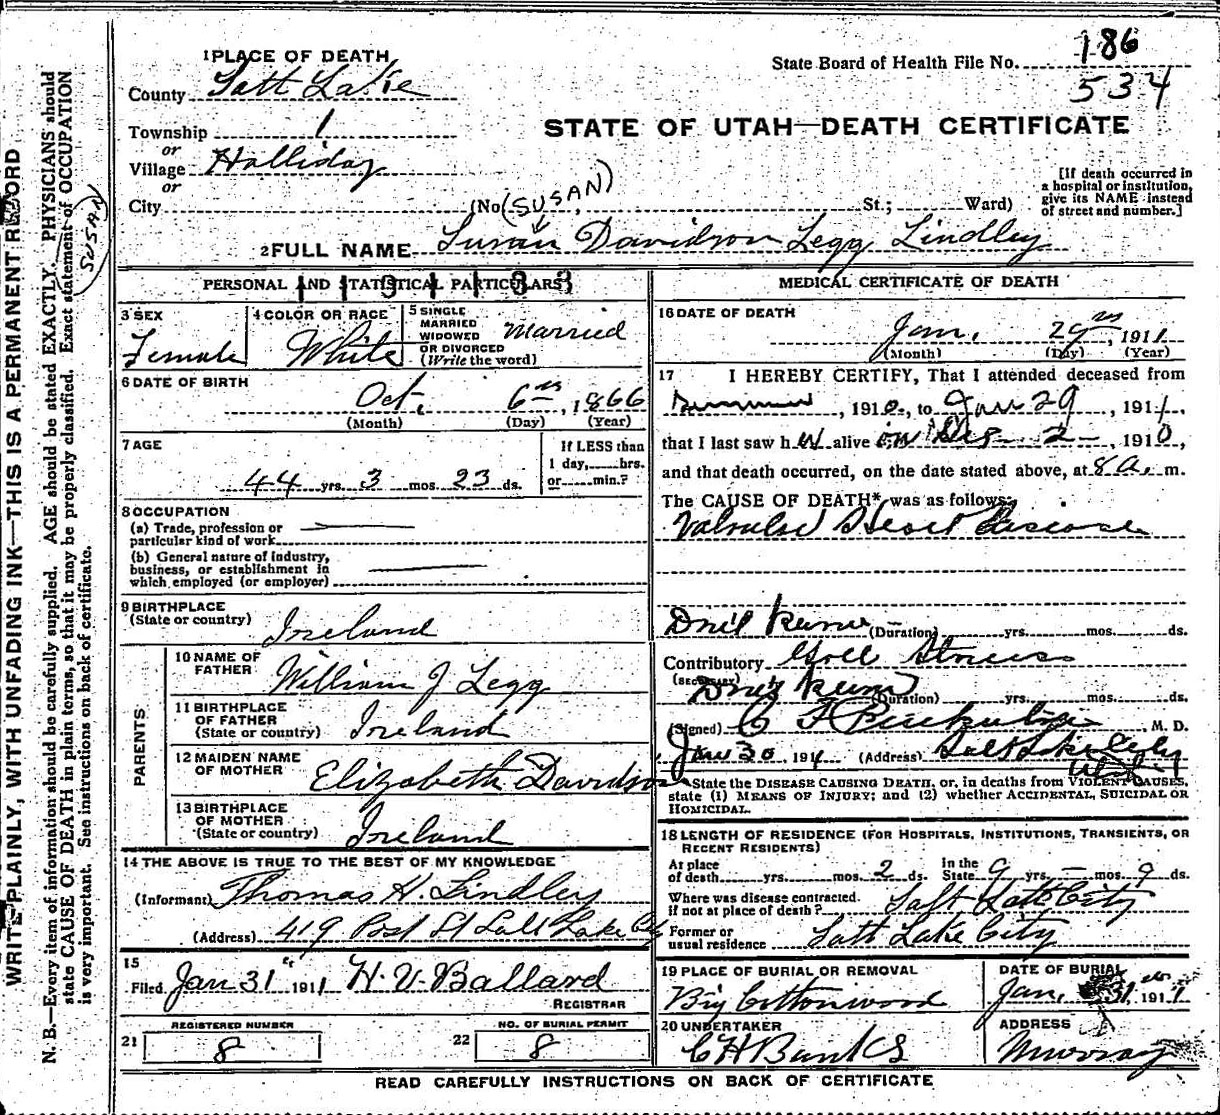 1 PLACE OF DEATH
County Salt Lake
Township 1
or
Village Holliday
or
City (No. (SUSAN) St.; Ward)
State Board of Health File No. 186
534
STATE OF UTAH—DEATH CERTIFICATE
[If death occurred in
a hospital or institution,
give its NAME instead
of street and number.]
2 FULL NAME Susan Davidson Legg Lindley
PERSONAL AND STATISTICAL PARTICULARS
3 SEX
Female
4 COLOR OR RACE
White
5 SINGLE
MARRIED
WIDOWED
OR DIVORCED
(Write the word)
Married
6 DATE OF BIRTH
Oct. 6th, 1866
(Month) (Day) (Year)
7 AGE
44 yrs. 3 mos. 23 ds.
If LESS than
1 day, hrs.
or min.?
8 OCCUPATION
(a) Trade, profession or
particular kind of work
(b) General nature of industry,
business, or establishment in
which employed (or employer)
9 BIRTHPLACE
(State or country)
Ireland
PARENTS
10 NAME OF
FATHER
William J Legg
11 BIRTHPLACE
OF FATHER
(State or country)
Ireland
12 MAIDEN NAME
OF MOTHER
Elizabeth Davidson
13 BIRTHPLACE
OF MOTHER
(State or country)
Ireland
14 THE ABOVE IS TRUE TO THE BEST OF MY KNOWLEDGE
(Informant) Thomas H. Lindley
(Address) 419 St Salt Lake City
15
Filed Jan 31 1911 H. V. Ballard
REGISTRAR
REGISTERED NUMBER
21 8
NO. OF BURIAL PERMIT
22 8
MEDICAL CERTIFICATE OF DEATH
16 DATE OF DEATH
Jan. 29, 1911
(Month) (Day) (Year)
17 I HEREBY CERTIFY, That I attended deceased from
Summer, 1910, to Jan 29, 1911,
that I last saw her alive on Dec 2, 1910,
and that death occurred, on the date stated above, at 8 a. m.
The CAUSE OF DEATH* was as follows:
Valvular Heart disease
(Duration) yrs. mos. ds.
Contributory Gall Stones
(SECONDARY)
(Duration) yrs. mos. ds.
(Signed) C F M. D.
Jan 30, 1911 (Address) Salt Lake City
Utah
*State the DISEASE CAUSING DEATH, or, in deaths from VIOLENT CAUSES,
state (1) MEANS OF INJURY; and (2) whether ACCIDENTAL, SUICIDAL OR
HOMICIDAL.
18 LENGTH OF RESIDENCE (FOR HOSPITALS, INSTITUTIONS, TRANSIENTS, OR
RECENT RESIDENTS)
At place
of death yrs. mos. 2 ds.
In the
State 9 yrs. — mos. 9 ds.
Where was disease contracted.
if not at place of death? Salt Lake City
Former or
usual residence Salt Lake City
19 PLACE OF BURIAL OR REMOVAL
Big Cottonwood
DATE OF BURIAL
Jan. 31, 1911
20 UNDERTAKER
C H Banks
ADDRESS
Murray
READ CAREFULLY INSTRUCTIONS ON BACK OF CERTIFICATE
WRITE PLAINLY, WITH UNFADING INK—THIS IS A PERMANENT RECORD
N. B.—Every item of information should be carefully supplied. AGE should be stated EXACTLY. PHYSICIANS should
state CAUSE OF DEATH in plain terms, so that it may be properly classified. Exact statement of OCCUPATION
is very important. See instructions on back of certificate.
(SUSAN)